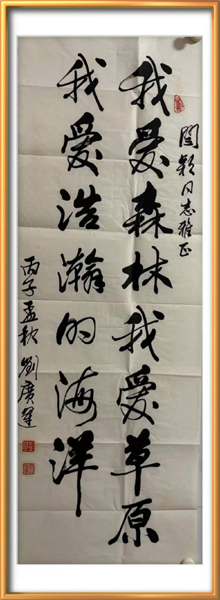 阎颖同志雅正
我爱森林我爱草原
我爱浩瀚的海洋
丙子孟秋 劉廣運